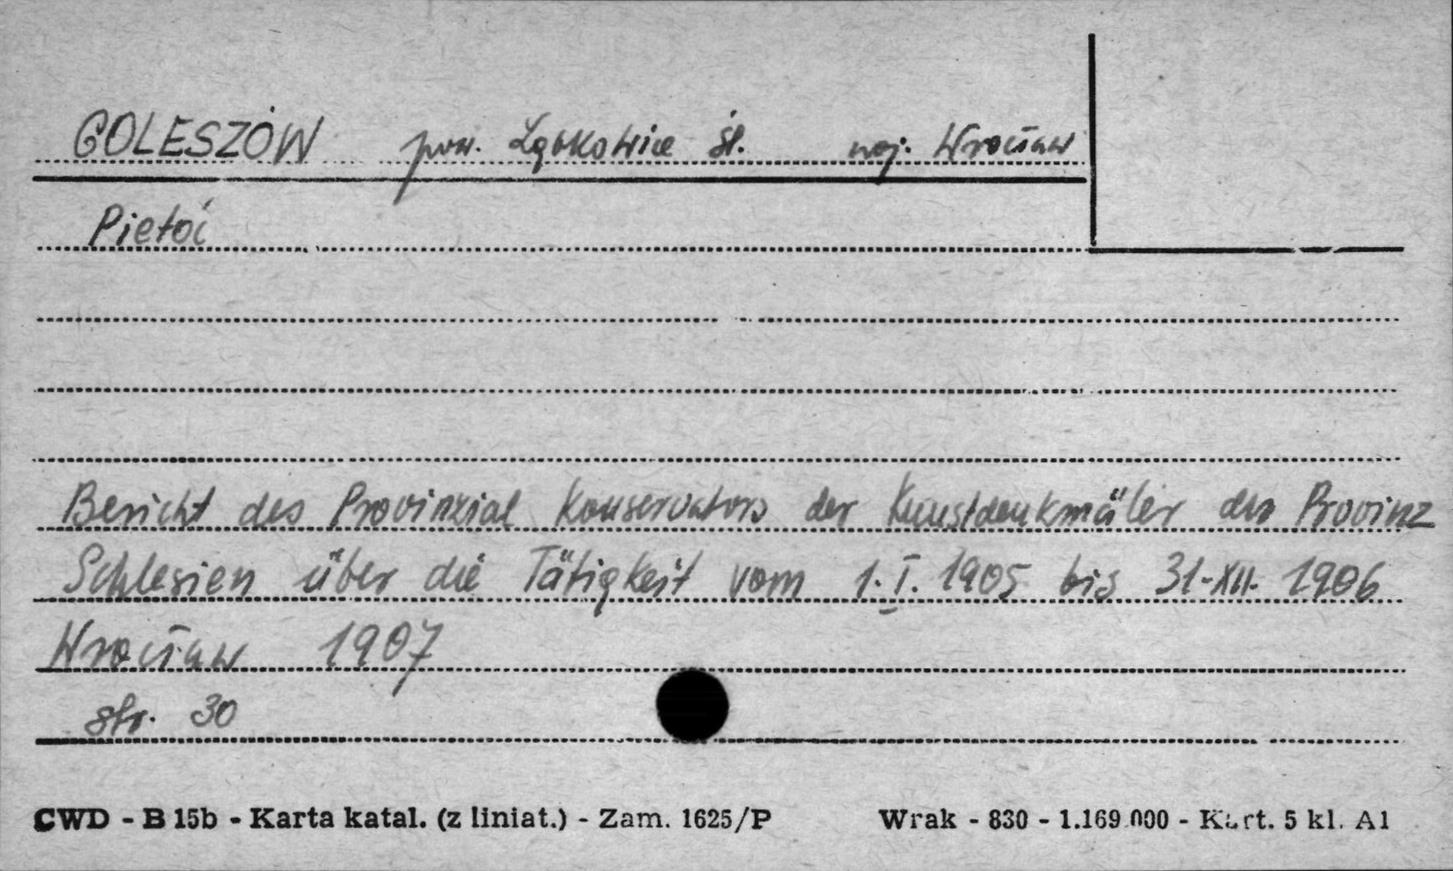 GOLESZÓW pow. Ząbkowice Śl. woj. Wrocław
Pietoć
Bericht des Provinzial Konservators der Kunstdenkmäler der Provinz
Schlesien über die Tätigkeit vom 1.I. 1905 bis 31.XII. 1906
Wrocław 1907
str. 30
CWD - B 15b - Karta katal. (z liniat.) - Zam. 1625/P Wrak - 830 - 1.169.000 - Kart. 5 kl. A1